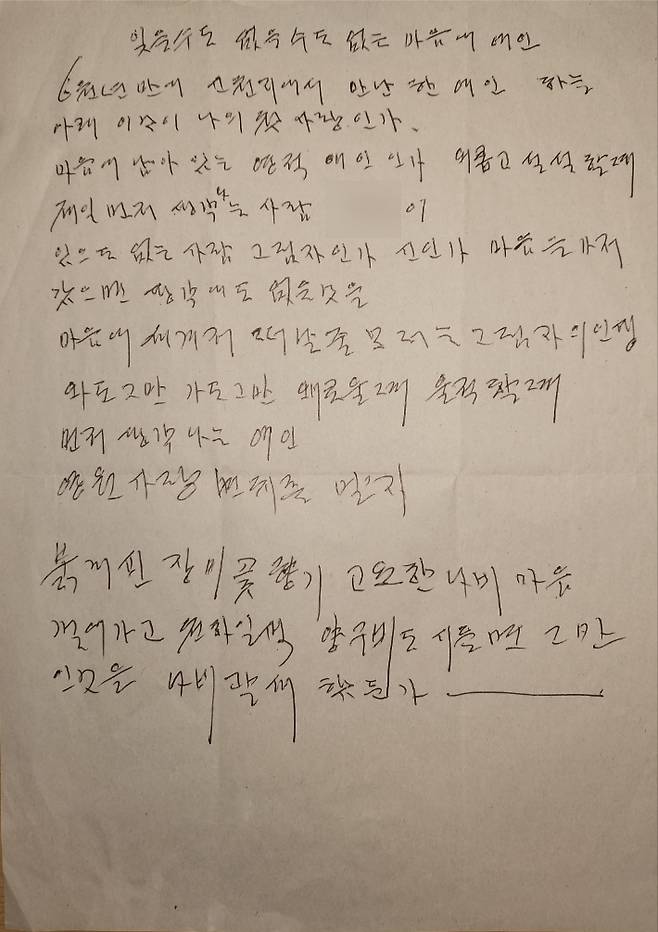 잊을수도 없을수도 없는 마음에 애인
6월년만에 신원리에서 만난 한 애인 하늘
아래 이것이 나의 첫 사랑인가.
마음에 남아 있는 영적 애인인가 외롭고 설설할때
제일먼저 생각나는 사람 이
있으도 없는 사람 그림자인가 신인가 마음을가저
갔으면 생각에도 없을것을
마음에 세계저 떠날줄 모러는 그림자의인생
와도그만 가도그만 왜로울때 울적할때
먼저 생각나는 애인
영원사랑
붉게핀 장미꽃 향기 고요한 나비 마음
꺾어가고 원하일색 양구비도 시들면 그만
인것을 나비